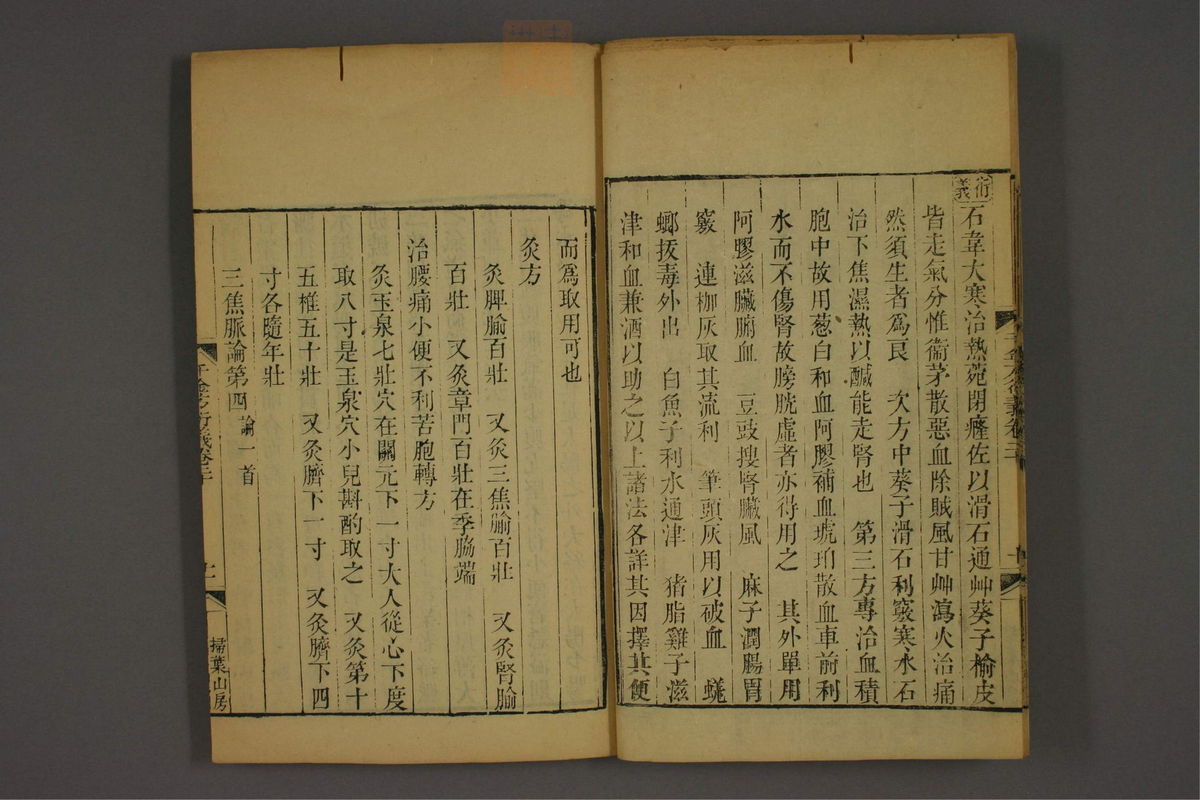 衍義 石韋大寒治熱菀閉癃佐以滑石通艸葵子榆皮
皆走氣分惟衞茅散惡血除賊風甘艸瀉火治痛
然須生者爲良　次方中葵子滑石利竅寒水石
治下焦濕熱以鹹能走腎也　第三方專治血積
胞中故用葱白和血阿膠補血琥珀散血車前利
水而不傷腎故膀胱虛者亦得用之　其外單用
阿膠滋臟腑血　豆豉搜腎臟風　麻子潤腸胃
竅　連枷灰取其流利　筆頭灰用以破血　蟻
螂拔毒外出　白魚子利水通津　猪脂雞子滋
津和血兼酒以助之以上諸法各詳其因擇其便
而爲取用可也
灸方
灸脾腧百壯　又灸三焦腧百壯　又灸腎腧
百壯　又灸章門百壯在季脇端
治腰痛小便不利苦胞轉方
灸玉泉七壯穴在關元下一寸大人從心下度
取八寸是玉泉穴小兒斟酌取之　又灸第十
五椎五十壯　又灸臍下一寸　又灸臍下四
寸各隨年壯
三焦脈論第四　論一首
掃葉山房